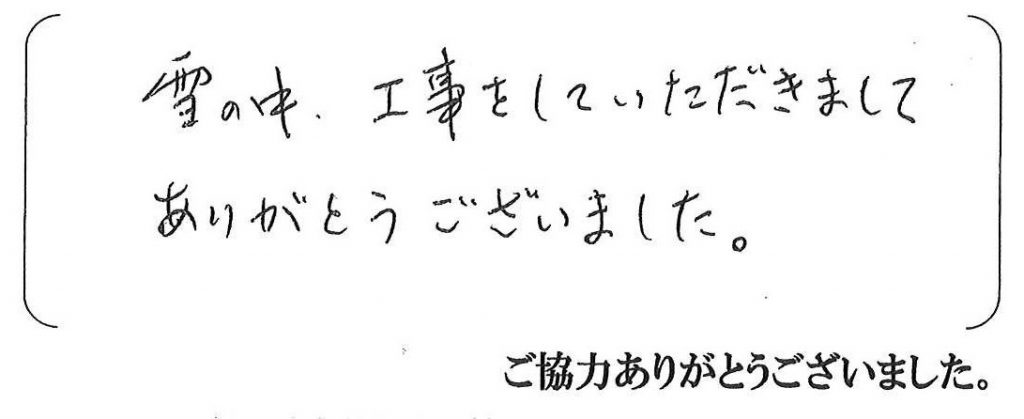 雪の中、工事をしていただきまして
ありがとうございました。
ご協力ありがとうございました。